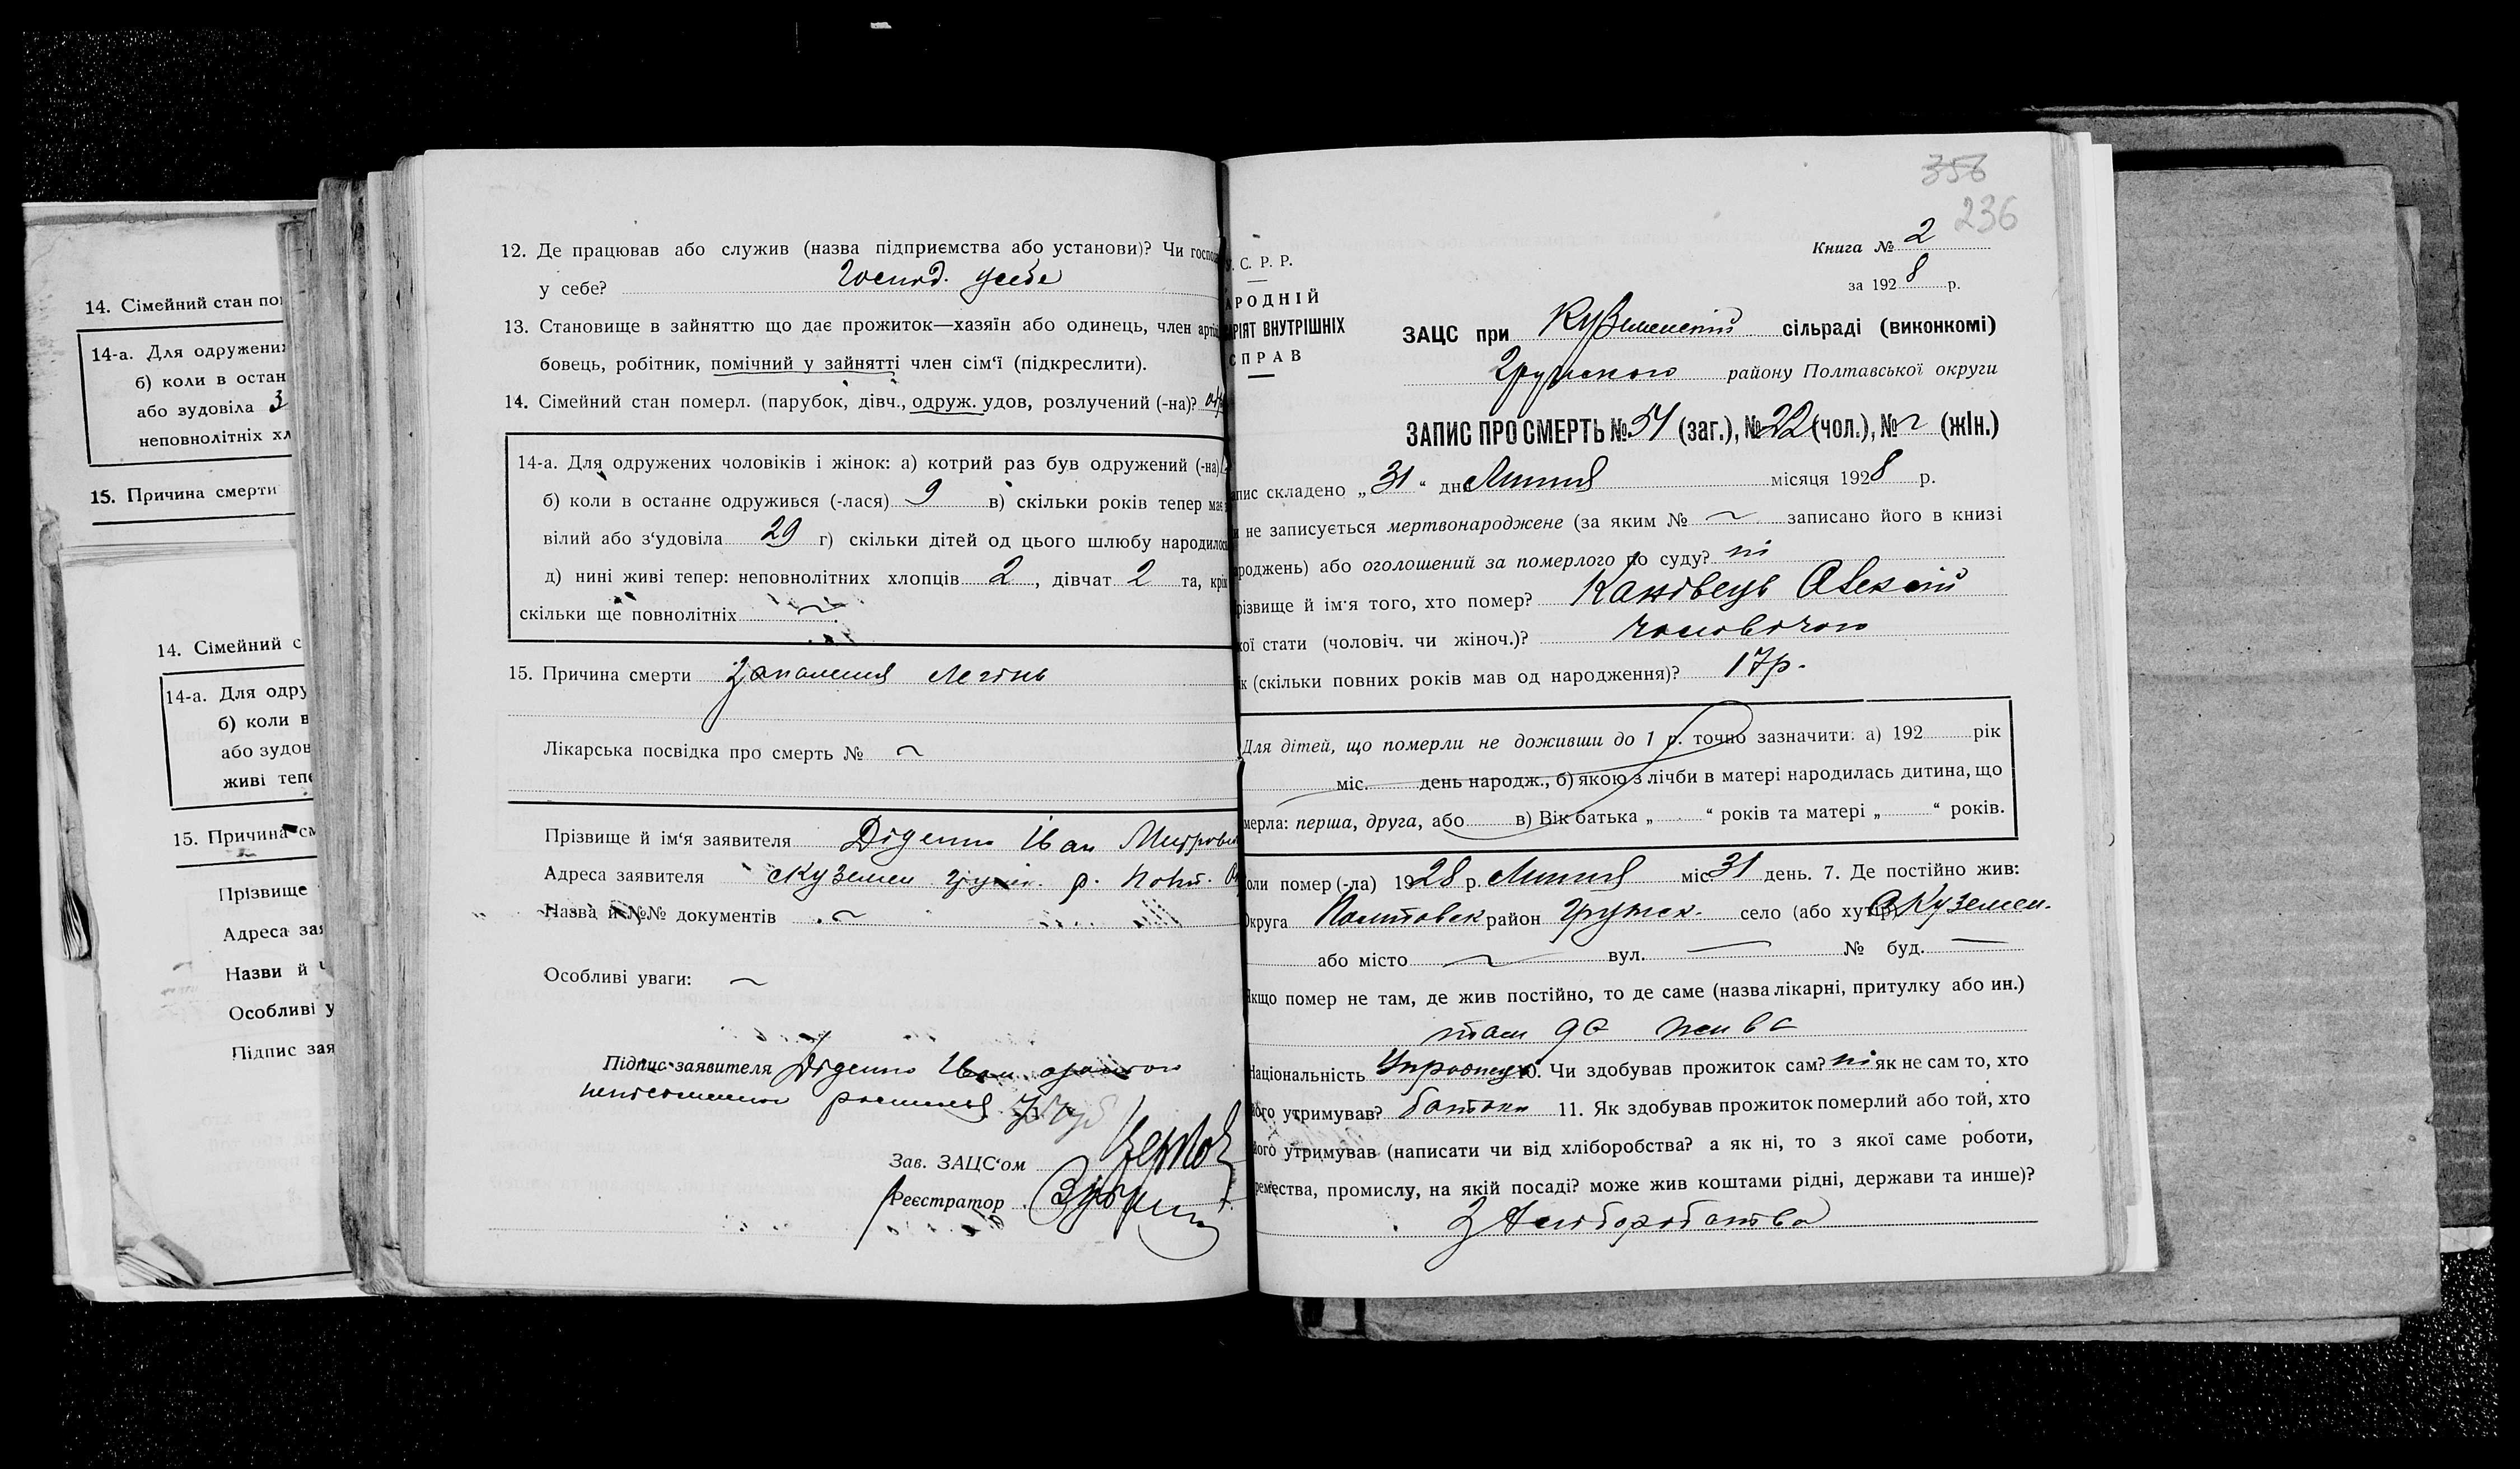 14. Сімейний стан по
14-а. Для одружених
б) коли в остан
або зудовіла 3
неповнолітніх хл
15. Причина смерти
14. Сімейний с
14-а. Для одру
б) коли в
або зудов
живі тепе
15. Причина см
Прізвище
Адреса зая
Назви й
Особливі у
Підпис зая
12. Де працював або служив (назва підприємства або установи)? Чи господ
у себе? господ. у себе
13. Становище в зайняттю що дає прожиток—хазяїн або одинець, член арті
бовець, робітник, помічний у зайнятті член сім'ї (підкреслити).
14. Сімейний стан померл. (парубок, дівч., одруж. удов, розлучений (-на)?
14-а. Для одружених чоловіків і жінок: а) котрий раз був одружений (-на)
б) коли в останнє одружився (-лася) 9 в) скільки років тепер має
вілий або з'удовіла 29 г) скільки дітей од цього шлюбу народилось
д) нині живі тепер: неповнолітних хлопців 2, дівчат 2 та, крім
скільки ще повнолітніх ~
15. Причина смерти Запалення Легінь
Лікарська посвідка про смерть № ~
Прізвище й ім'я заявителя Діденко Іван
Адреса заявителя с Куземен Грунс. р. Полт.
Назва й №№ документів ~
Особливі уваги: ~
Підпис заявителя Діденко Іван
неписьменного
Зав. ЗАЦС'ом
Реєстратор
356
236
Книга № 2
за 1928 р.
У. С. Р. Р.
АРОДНІЙ
АРІЯТ ВНУТРІШНІХ
СПРАВ
ЗАЦС при Куземенській сільраді (виконкомі)
Грунського району Полтавської округи
ЗАПИС ПРО СМЕРТЬ № 51 (заг.), № 22 (чол.), № ~ (жін.)
апис складено „31" дня Липня місяця 1928 р.
и не записується мертвонароджене (за яким № ~ записано його в книзі
ароджень) або оголошений за померлого по суду? ні
різвище й ім'я того, хто помер? Канівець Олексій
кої стати (чоловіч. чи жіноч.)? чоловічого
ік (скільки повних років мав од народження)? 17 р.
Для дітей, що померли не доживши до 1 р. точно зазначити: а) 192 рік
міс. день народж., б) якою з лічби в матері народилась дитина, що
мерла: перша, друга, або в) Вік батька „ " років та матері „ " років.
оли помер (-ла) 1928 р. Липня міс 31 день. 7. Де постійно жив:
Округа Полтавськ район Грунськ. село (або хутір) с Куземен.
або місто ~ вул. — № буд. —
Якщо помер не там, де жив постійно, то де саме (назва лікарні, притулку або ин.)
там де жив
Національність Українець 10. Чи здобував прожиток сам? ні як не сам то, хто
його утримував? батьки 11. Як здобував прожиток померлий або той, хто
його утримував (написати чи від хліборобства? а як ні, то з якої саме роботи,
ремества, промислу, на якій посаді? може жив коштами рідні, держави та инше)?
З хліборобства